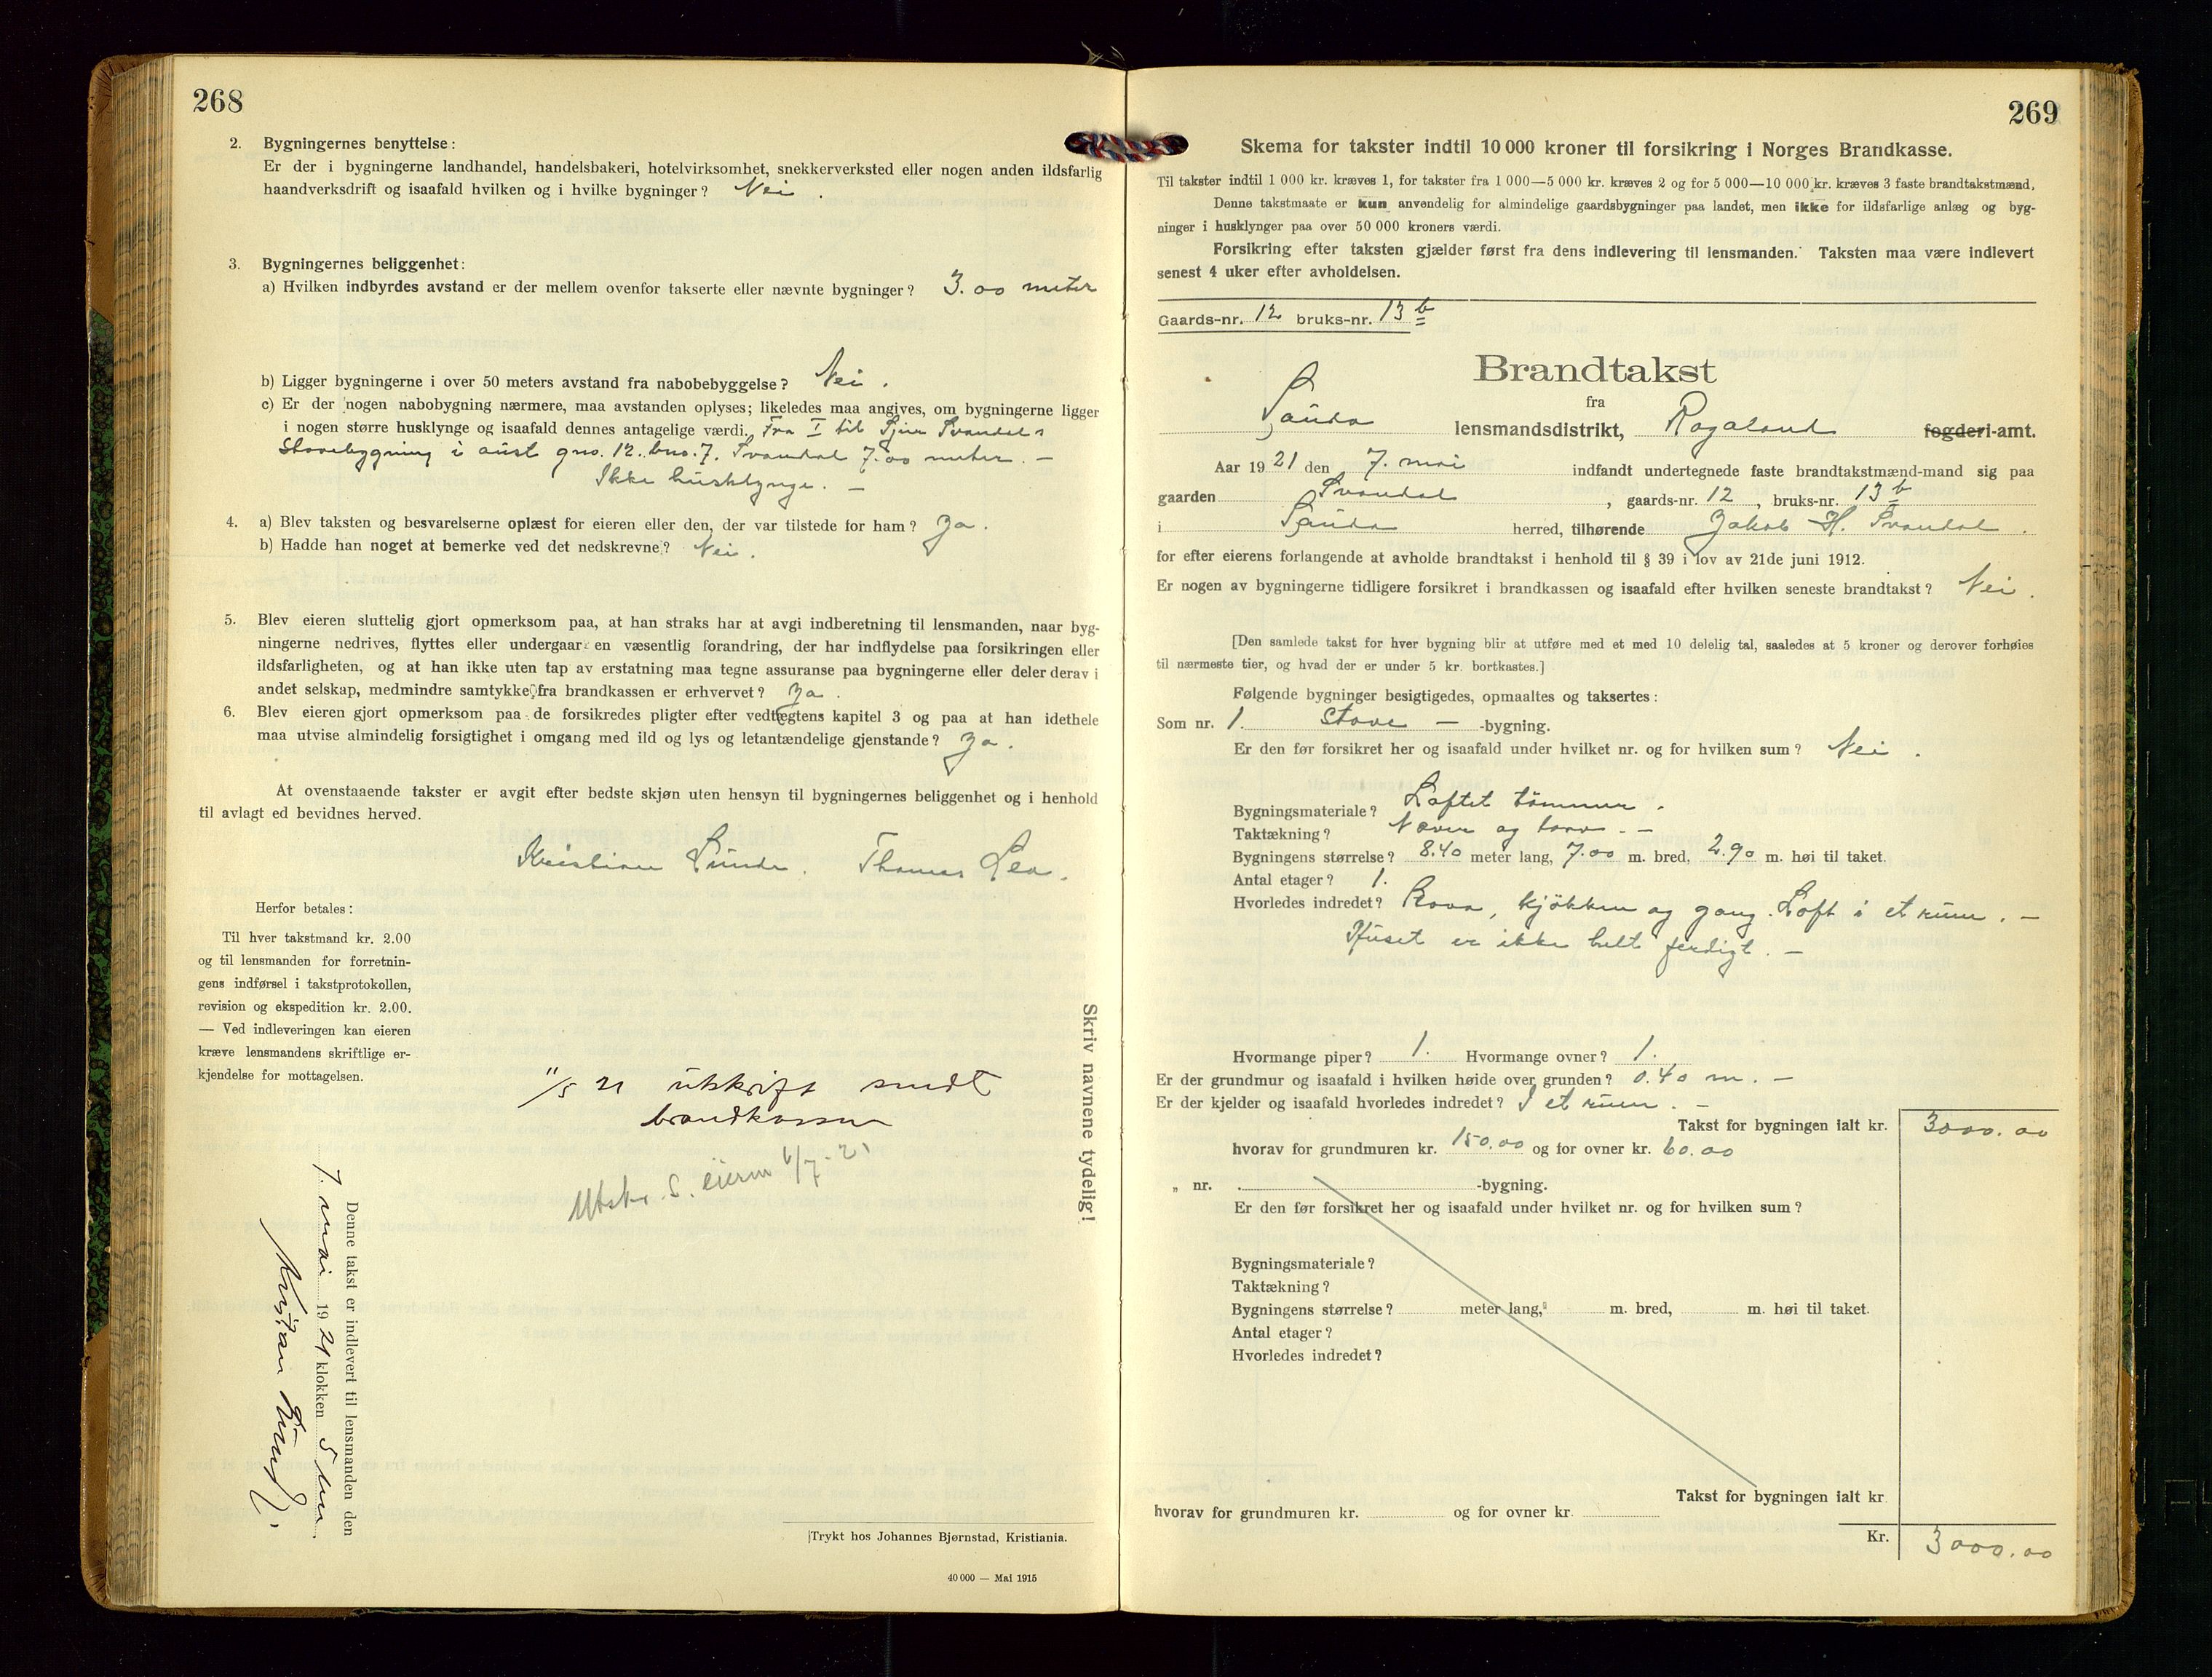 268
2. Bygningernes benyttelse:
Er der i bygningerne landhandel, handelsbakeri, hotelvirksomhet, snekkerverksted eller nogen anden ildsfarlig
haandverksdrift og isaafald hvilken og i hvilke bygninger? Nei.
3. Bygningernes beliggenhet:
a) Hvilken indbyrdes avstand er der mellem ovenfor takserte eller nævnte bygninger? 3.00 meter
b) Ligger bygningerne i over 50 meters avstand fra nabobebyggelse? Nei.
c) Er der nogen nabobygning nærmere, maa avstanden oplyses; likeledes maa angives, om bygningerne ligger
i nogen større husklynge og isaafald dennes antagelige værdi. Fra I til Svandals
Stovebygning i aust gno. 12. bno. 7. Svandal 7.00 meter. —
Ikke husklynge. —
4. a) Blev taksten og besvarelserne oplæst for eieren eller den, der var tilstede for ham? Ja.
b) Hadde han noget at bemerke ved det nedskrevne? Nei.
5. Blev eieren sluttelig gjort opmerksom paa, at han straks har at avgi indberetning til lensmanden, naar byg-
ningerne nedrives, flyttes eller undergaar en væsentlig forandring, der har indflydelse paa forsikringen eller
ildsfarligheten, og at han ikke uten tap av erstatning maa tegne assuranse paa bygningerne eller deler derav i
andet selskap, medmindre samtykke fra brandkassen er erhvervet? Ja.
6. Blev eieren gjort opmerksom paa de forsikredes pligter efter vedtægtens kapitel 3 og paa at han idethele
maa utvise almindelig forsigtighet i omgang med ild og lys og letantændelige gjenstande? Ja.
At ovenstaaende takster er avgit efter bedste skjøn uten hensyn til bygningernes beliggenhet og i henhold
til avlagt ed bevidnes herved.
Kristian Lunde. Thomas Lea.
Herfor betales:
Til hver takstmand kr. 2.00
og til lensmanden for forretnin-
gens indførsel i takstprotokollen,
revision og ekspedition kr. 2.00.
— Ved indleveringen kan eieren
kræve lensmandens skriftlige er-
kjendelse for mottagelsen.
11/5 21 utskrift sendt
brandkassen
Utskr. s. eieren 6/7-21
Skriv navnene tydelig!
Denne takst er indlevert til lensmanden den
7. mai 1921 klokken 5 em.
Kristian
Trykt hos Johannes Bjørnstad, Kristiania.
40 000 — Mai 1915
269
Skema for takster indtil 10 000 kroner til forsikring i Norges Brandkasse.
Til takster indtil 1 000 kr. kræves 1, for takster fra 1 000—5 000 kr. kræves 2 og for 5 000—10 000 kr. kræves 3 faste brandtakstmænd.
Denne takstmaate er kun anvendelig for almindelige gaardsbygninger paa landet, men ikke for ildsfarlige anlæg og byg-
ninger i husklynger paa over 50 000 kroners værdi.
Forsikring efter taksten gjælder først fra dens indlevering til lensmanden. Taksten maa være indlevert
senest 4 uker efter avholdelsen.
Gaards-nr. 12 bruks-nr. 13 b
Brandtakst
fra
Sauda lensmandsdistrikt, Rogaland fogderi-amt.
Aar 1921 den 7. mai indfandt undertegnede faste brandtakstmænd-mand sig paa
gaarden Svandal, gaards-nr. 12, bruks-nr. 13 b
i Sauda herred, tilhørende Jakob H. Svandal.
for efter eierens forlangende at avholde brandtakst i henhold til § 39 i lov av 21de juni 1912.
Er nogen av bygningerne tidligere forsikret i brandkassen og isaafald efter hvilken seneste brandtakst? Nei.
[Den samlede takst for hver bygning blir at utføre med et med 10 delelig tal, saaledes at 5 kroner og derover forhøies
til nærmeste tier, og hvad der er under 5 kr. bortkastes.]
Følgende bygninger besigtigedes, opmaaltes og taksertes:
Som nr. 1. Stove — -bygning.
Er den før forsikret her og isaafald under hvilket nr. og for hvilken sum? Nei.
Bygningsmateriale? Laftet tømmer.
Taktækning? Næver og torv. —
Bygningens størrelse? 8.40 meter lang, 7.00 m. bred, 2.90 m. høi til taket.
Antal etager? 1.
Hvorledes indredet? Stova, kjökken og gang. Loft i et rum. —
Huset er ikke helt ferdigt. —
Hvormange piper? 1. Hvormange ovner? 1.
Er der grundmur og isaafald i hvilken høide over grunden? 0.40 m. —
Er der kjelder og isaafald hvorledes indredet? I et rum. —
Takst for bygningen ialt kr. 3000.00
hvorav for grundmuren kr. 150.00 og for ovner kr. 60.00
„ nr. -bygning.
Er den før forsikret her og isaafald under hvilket nr. og for hvilken sum?
Bygningsmateriale?
Taktækning?
Bygningens størrelse? meter lang, m. bred, m. høi til taket.
Antal etager?
Hvorledes indredet?
Takst for bygningen ialt kr.
hvorav for grundmuren kr. og for ovner kr.
Kr. 3000.00